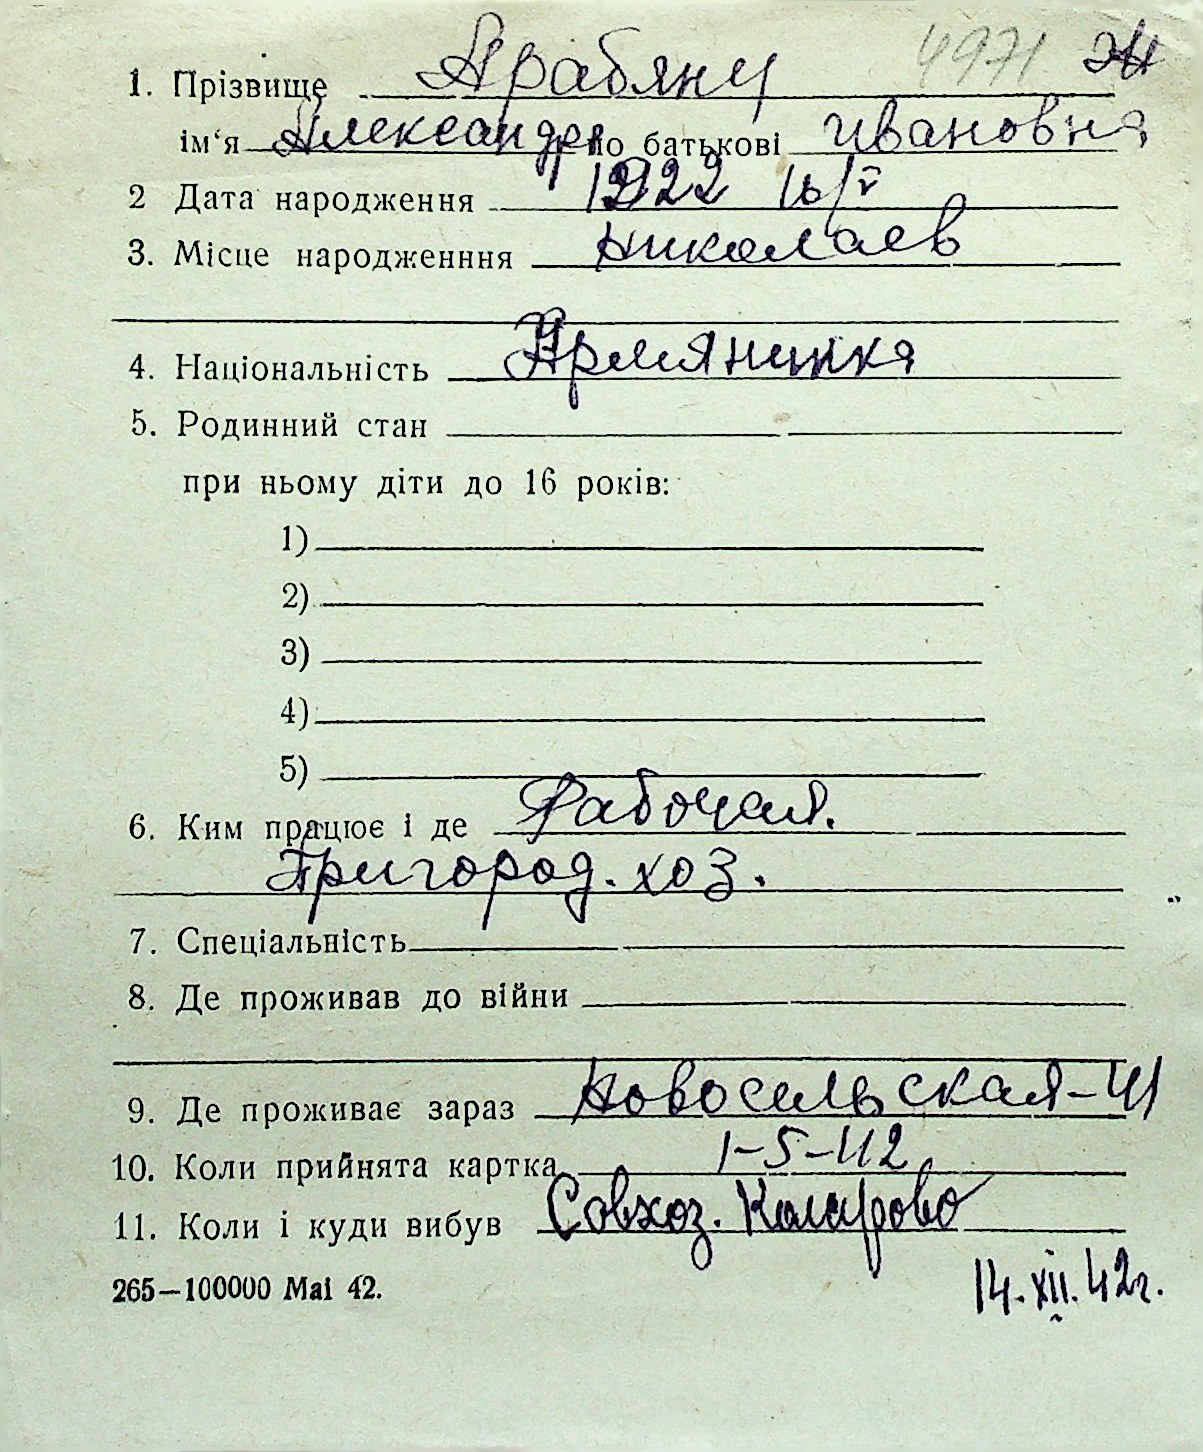 4971
1. Прізвище Арабяну
ім'я Александра по батькові Ивановна
2 Дата народження 1922 16/V
3. Місце народженння Николаев
4. Національність Армянинка
5. Родинний стан
при ньому діти до 16 років:
1)
2)
3)
4)
5)
6. Ким працює і де Рабочая.
Пригород. хоз.
7. Спеціальність
8. Де проживав до війни
9. Де проживає зараз Новосельская-41
10. Коли прийнята картка 1-5-42
11. Коли і куди вибув Совхоз.
14.XII.42г.
265—100000 Mai 42.